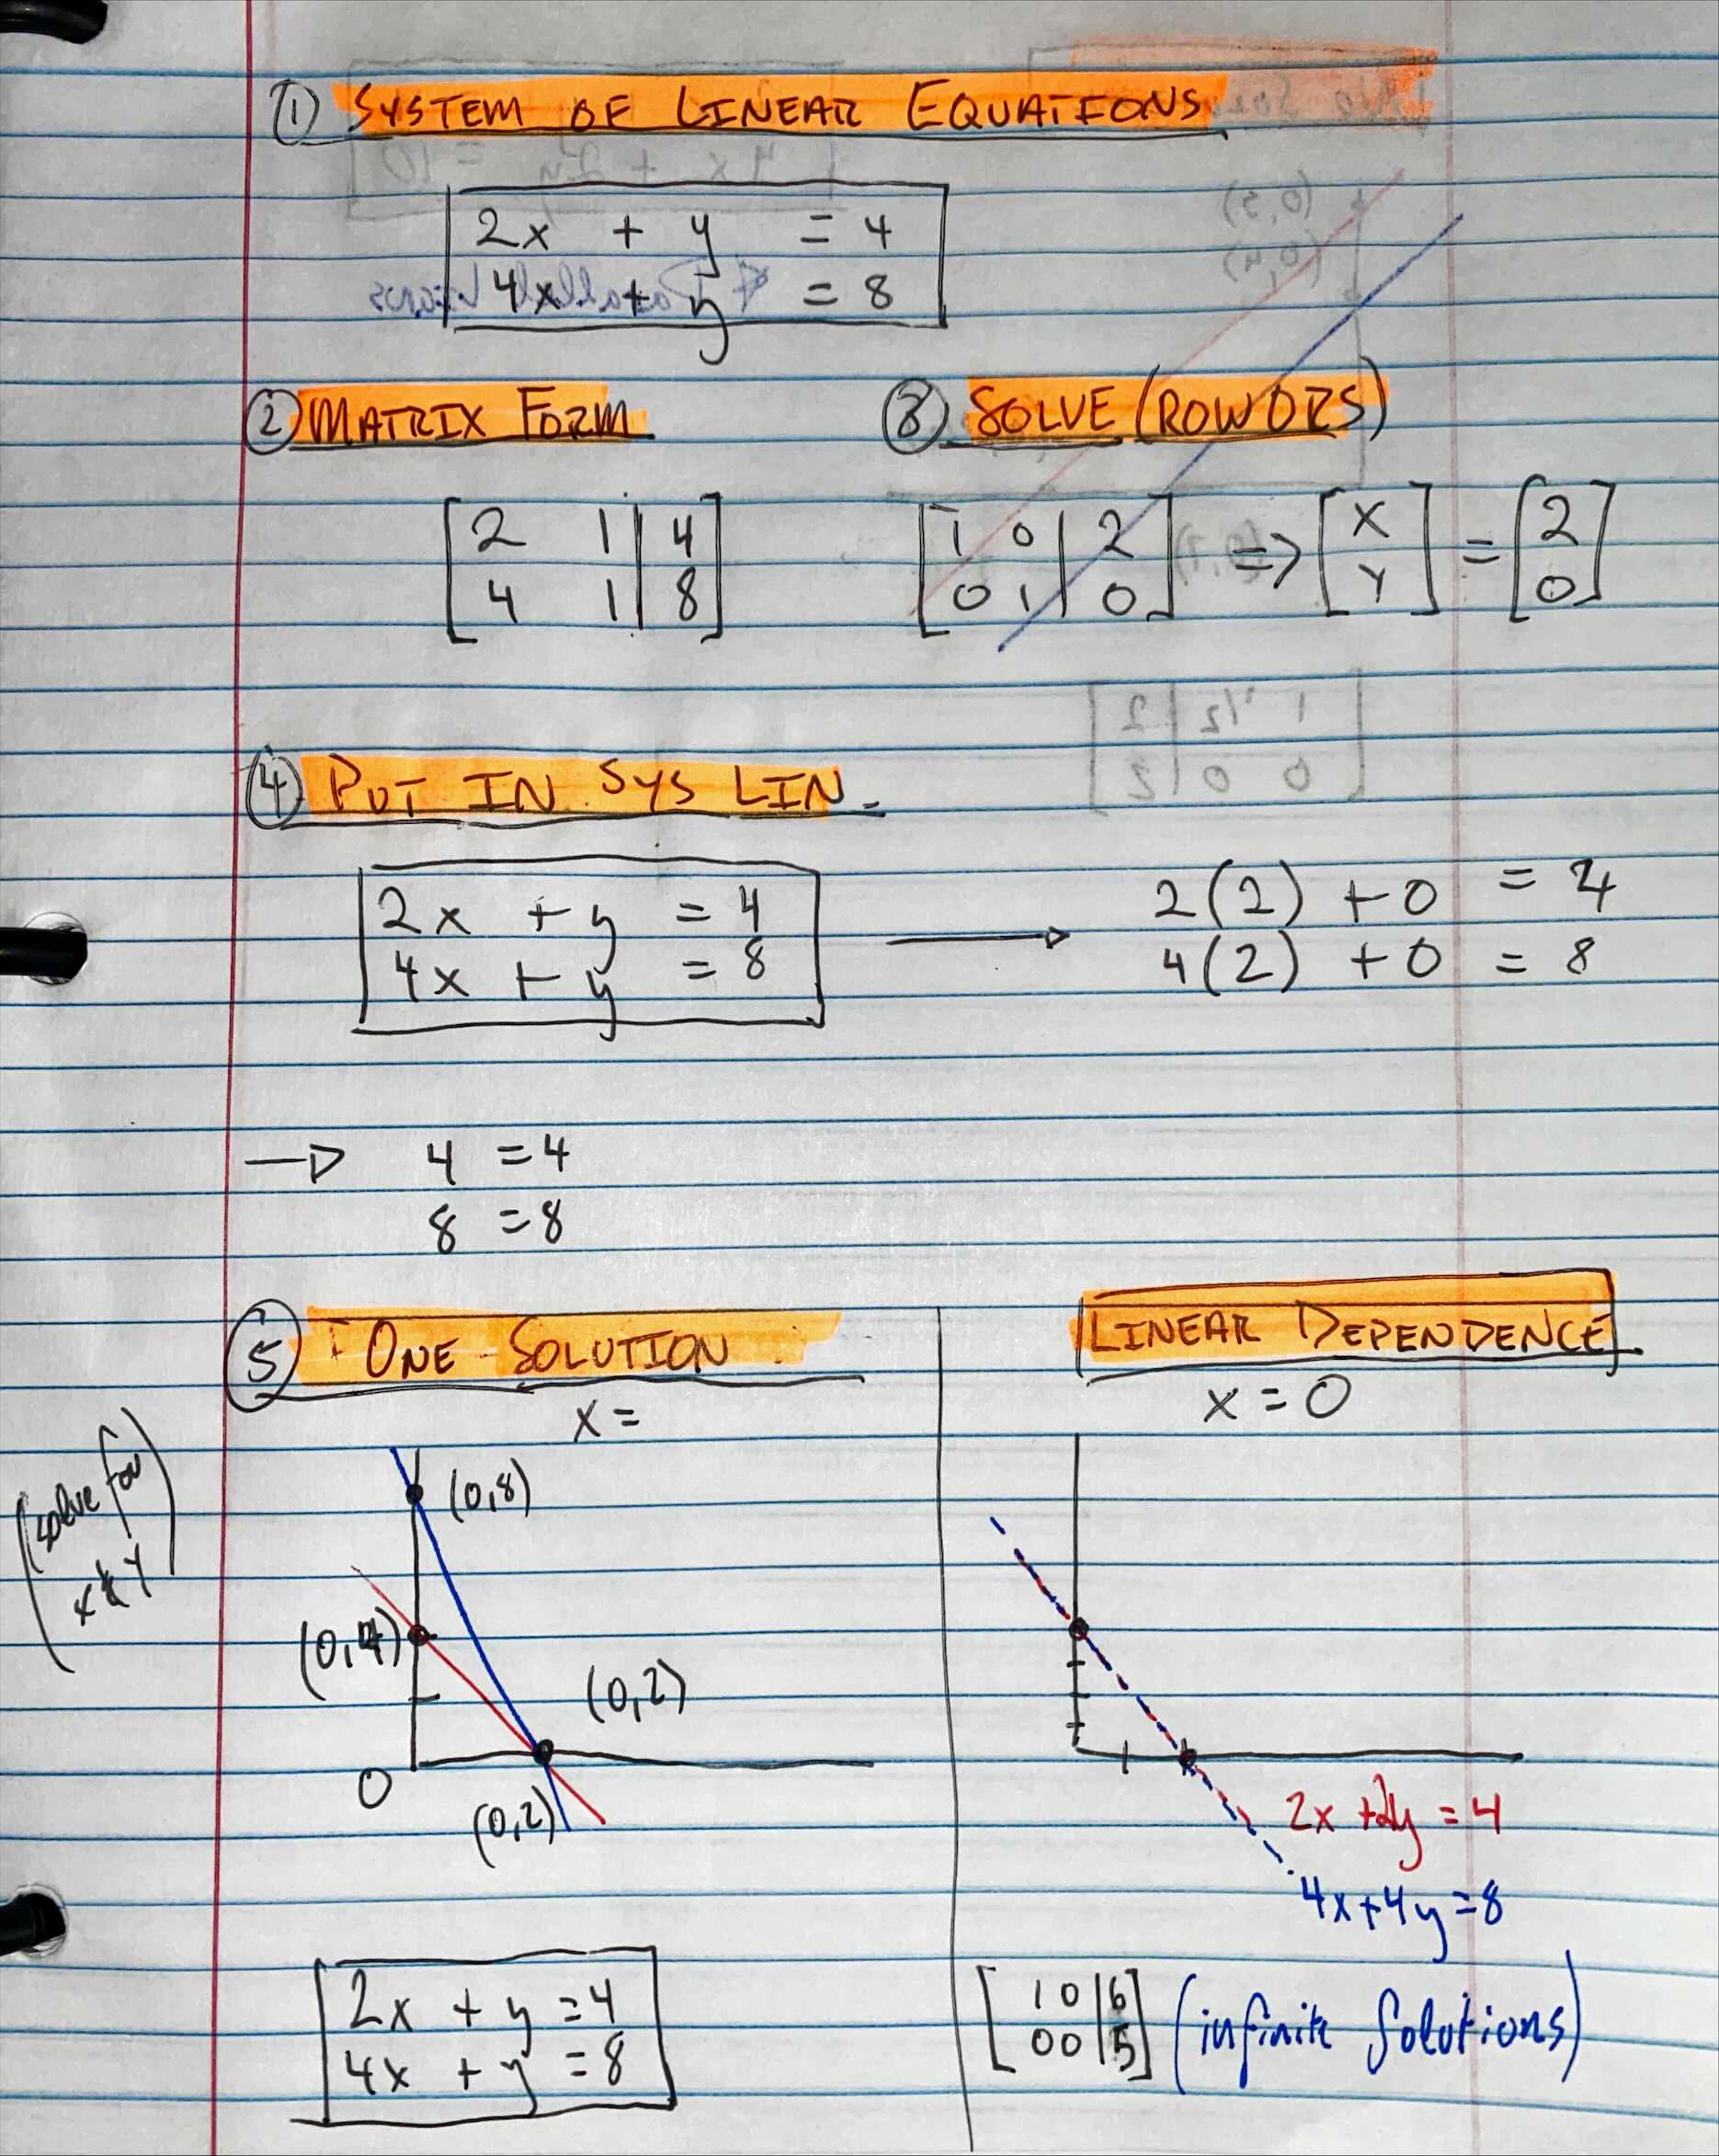 ① SYSTEM OF LINEAR EQUATIONS
2x + y = 4
4x + y = 8
② MATRIX FORM
③ SOLVE (ROW OPS)
[2 1 | 4
4 1 | 8]
[1 0 | 2
0 1 | 0] => [x
y] = [2
0]
④ PUT IN SYS LIN.
2x + y = 4
4x + y = 8
2(2) + 0 = 4
4(2) + 0 = 8
4 = 4
8 = 8
⑤ ONE SOLUTION
x =
(solve for
x & y)
(0,8)
(0,4)
(0,2)
0
(0,2)
2x + y = 4
4x + y = 8
LINEAR DEPENDENCE
x = 0
2x + 2y = 4
4x + 4y = 8
[1 0 | 6
0 0 | 5] (infinite solutions)